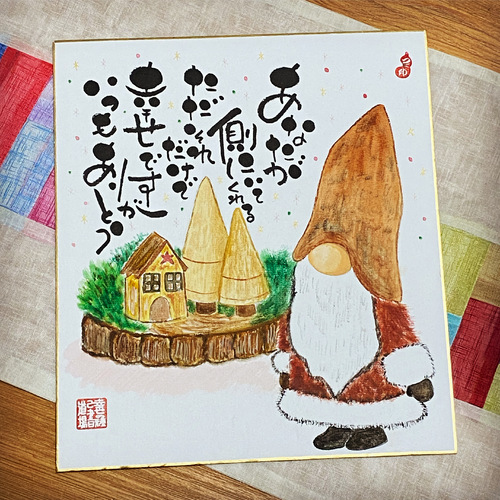 あなたが
側にいてくれる
ただそれだけで
幸せです
いつもありがとう